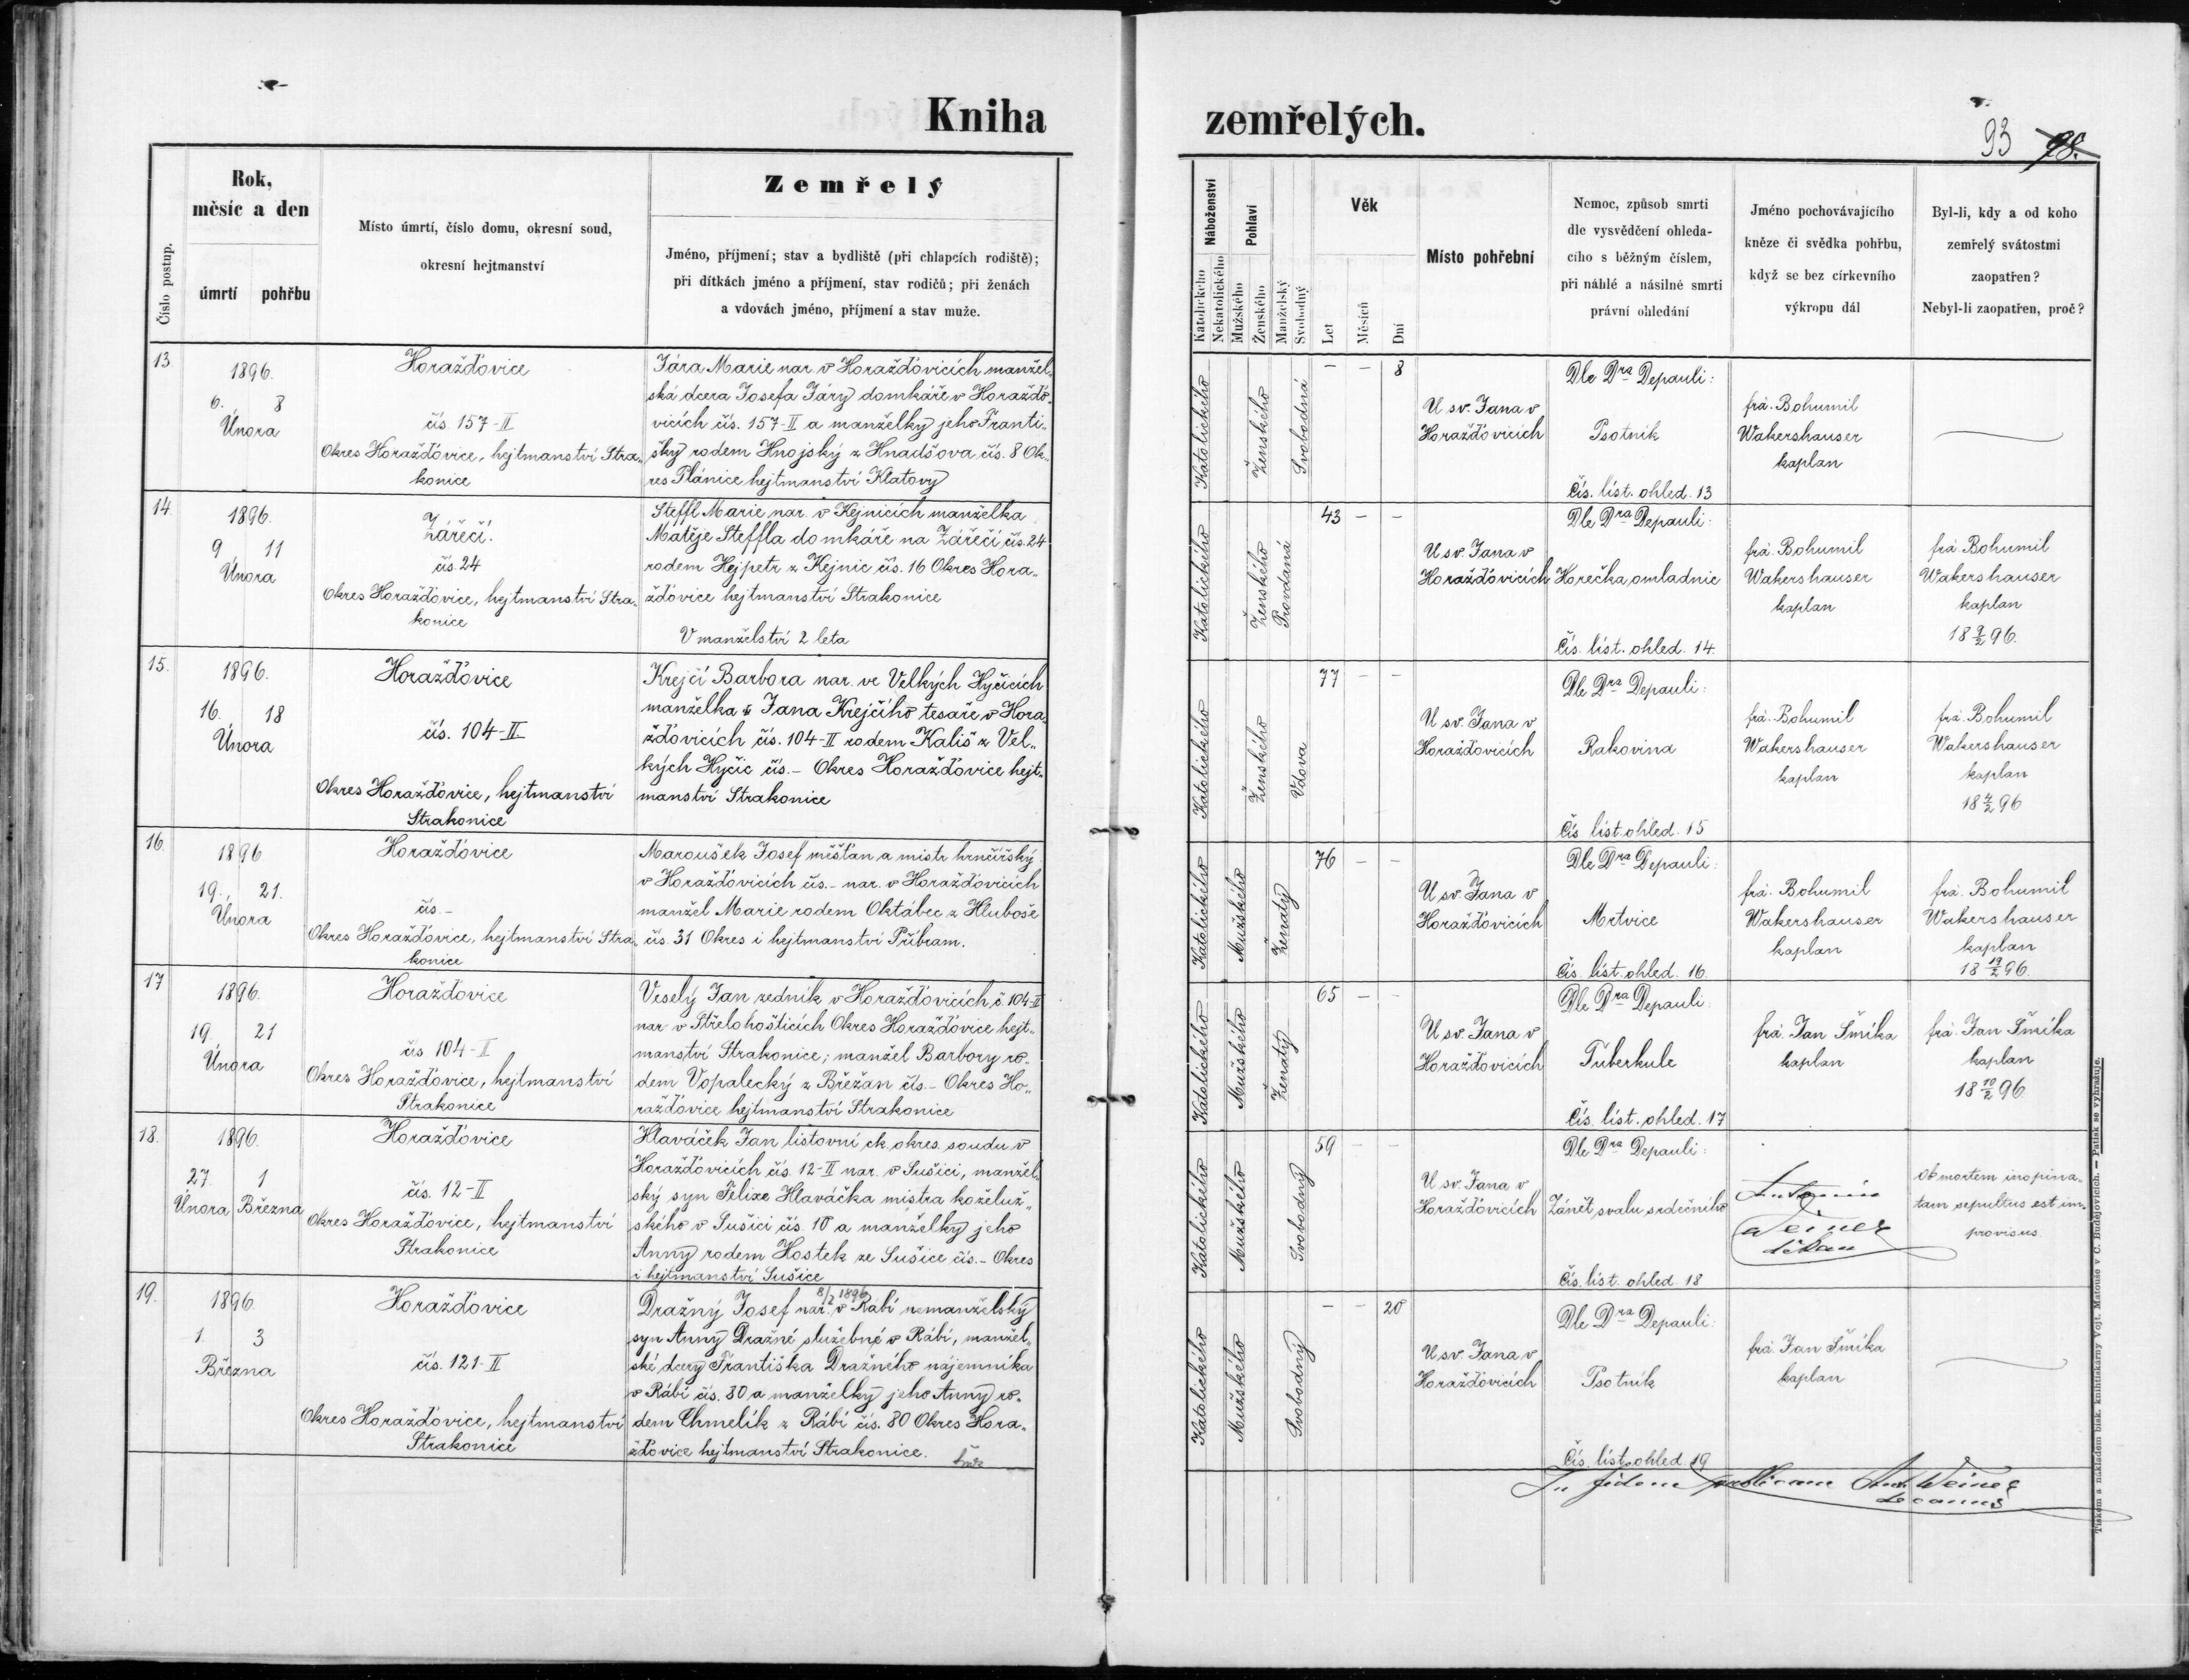 Kniha
zemřelých.
93 98.
Číslo postup.
Rok,
měsíc a den
úmrtí pohřbu
Místo úmrtí, číslo domu, okresní soud,
okresní hejtmanství
Zemřelý
Jméno, příjmení; stav a bydliště (při chlapcích rodiště);
při dítkách jméno a příjmení, stav rodičů; při ženách
a vdovách jméno, příjmení a stav muže.
Náboženství
Katolického
Nekatolického
Pohlaví
Mužského
Ženského
Manželský
Svobodný
Věk
Let
Měsíců
Dní
Místo pohřební
Nemoc, způsob smrti
dle vysvědčení ohleda-
cího s běžným číslem,
při náhlé a násilné smrti
právní ohledání
Jméno pochovávajícího
kněze či svědka pohřbu,
když se bez církevního
výkropu dál
Byl-li, kdy a od koho
zemřelý svátostmi
zaopatřen?
Nebyl-li zaopatřen, proč?
13
1896.
6. 8
Února
Horažďovice
čís. 157-II
Okres Horažďovice, hejtmanství Stra-
konice
Jára Marie nar. v Horažďovicích manžel-
ská dcera Josefa Járy domkáře v Horaždo-
vicích čís. 157-II a manželky jeho Franti-
šky rodem Hnojský z Hnadšova čís. 8 Ok-
res Plánice hejtmanství Klatovy
Katolického
Ženského
Svobodná
- - 8
U sv. Jana v
Horažďovicích
Dle Dra Depauli:
Psotník
Čís. líst. ohled. 13
frá. Bohumil
Wakershauser
kaplan
14.
1896.
9 11
Února
Zářečí.
čís. 24
Okres Horažďovice, hejtmanství Stra-
konice
Steffl Marie nar. v Kejnicích manželka
Matěje Steffla domkáře na Zářečí čís. 24
rodem Hejpetr z Kejnic čís. 16 Okres Hora-
žďovice hejtmanství Strakonice
V manželství 2 leta
Katolického
Ženského
Provdaná
43 - -
U sv. Jana v
Horažďovicích
Dle Dra Depauli:
Horečka omladnic
Čís. líst. ohled. 14.
frá. Bohumil
Wakershauser
kaplan
frá. Bohumil
Wakershauser
kaplan
18 9/2 96.
15.
1896.
16. 18
Února
Horažďovice
čís. 104-II
Okres Horažďovice, hejtmanství
Strakonice
Krejčí Barbora nar. ve Velkých Hyčicích
manželka Jana Krejčího tesaře v Hora-
žďovicích čís. 104-II rodem Kališ z Vel-
kých Hyčic čís. - Okres Horažďovice hejt-
manství Strakonice
Katolického
Ženského
Vdova
77 - -
U sv. Jana v
Horažďovicích
Dle Dra Depauli:
Rakovina
Čís. líst. ohled. 15
frá. Bohumil
Wakershauser
kaplan
frá. Bohumil
Wakershauser
kaplan
18 4/2 96
16.
1896
19. 21.
Února
Horažďovice
čís. -
Okres Horažďovice, hejtmanství Stra-
konice
Maroušek Josef měšťan a mistr hrnčířský
v Horažďovicích čís. - nar. v Horažďovicích
manžel Marie rodem Oktábec z Hluboše
čís. 31 Okres i hejtmanství Příbram.
Katolického
Mužského
Ženatý
76 - -
U sv. Jana v
Horažďovicích
Dle Dra Depauli:
Mrtvice
Čís. líst. ohled. 16.
frá. Bohumil
Wakershauser
kaplan
frá. Bohumil
Wakershauser
kaplan
18 19/2 96.
17
1896.
19. 21
Února
Horažďovice
čís 104-I
Okres Horažďovice, hejtmanství
Strakonice
Veselý Jan zedník v Horažďovicích č. 104-II
nar. v Střelohošticích Okres Horažďovice hejt-
manství Strakonice; manžel Barbory ro-
dem Vopalecký z Břežan čís. - Okres Ho-
ražďovice hejtmanství Strakonice
Katolického
Mužského
Ženatý
65 - -
U sv. Jana v
Horažďovicích
Dle Dra Depauli:
Tuberkule
Čís. líst. ohled. 17
frá. Jan Šmíka
kaplan
frá. Jan Šmíka
kaplan
18 10/2 96
18.
1896.
27. 1
Února Března
Horažďovice
čís. 12-II
Okres Horažďovice, hejtmanství
Strakonice
Hlaváček Jan listovní ck. okres. soudu v
Horažďovicích čís. 12-II nar. v Sušici, manžel-
ský syn Felixe Hlaváčka mistra koželuž-
ského v Sušici čís. 10 a manželky jeho
Anny rodem Hostek ze Sušice čís. - Okres
i hejtmanství Sušice
Katolického
Mužského
Svobodný
59 - -
U sv. Jana v
Horažďovicích
Dle Dra Depauli:
Zánět svalu srdečního
Čís. líst. ohled 18
Antonín
Weiner
děkan
Ob mortem inopina-
tam sepultus est im-
provisus.
19.
1896.
1. 3
Března
Horažďovice
čís. 121-II
Okres Horažďovice, hejtmanství
Strakonice
Dražný Josef nar. 8/2 1896 v Rábí nemanželský
syn Anny Dražné služebné v Rábí, manžel-
ské dcery Františka Dražného nájemníka
v Rábí čís. 80 a manželky jeho Anny ro-
dem Chmelík z Rábí čís. 80 Okres Hora-
žďovice hejtmanství Strakonice.
Katolického
Mužského
Svobodný
- - 20
U sv. Jana v
Horažďovicích
Dle Dra Depauli:
Psotník
Čís. líst. ohled 19
frá. Jan Šmíka
kaplan
In fidem publicam Ant. Weiner
decanus
Tiskem a nákladem bisk. knihtiskárny Vojt. Matouše v C. Budějovicích. — Patisk se vyhražuje.